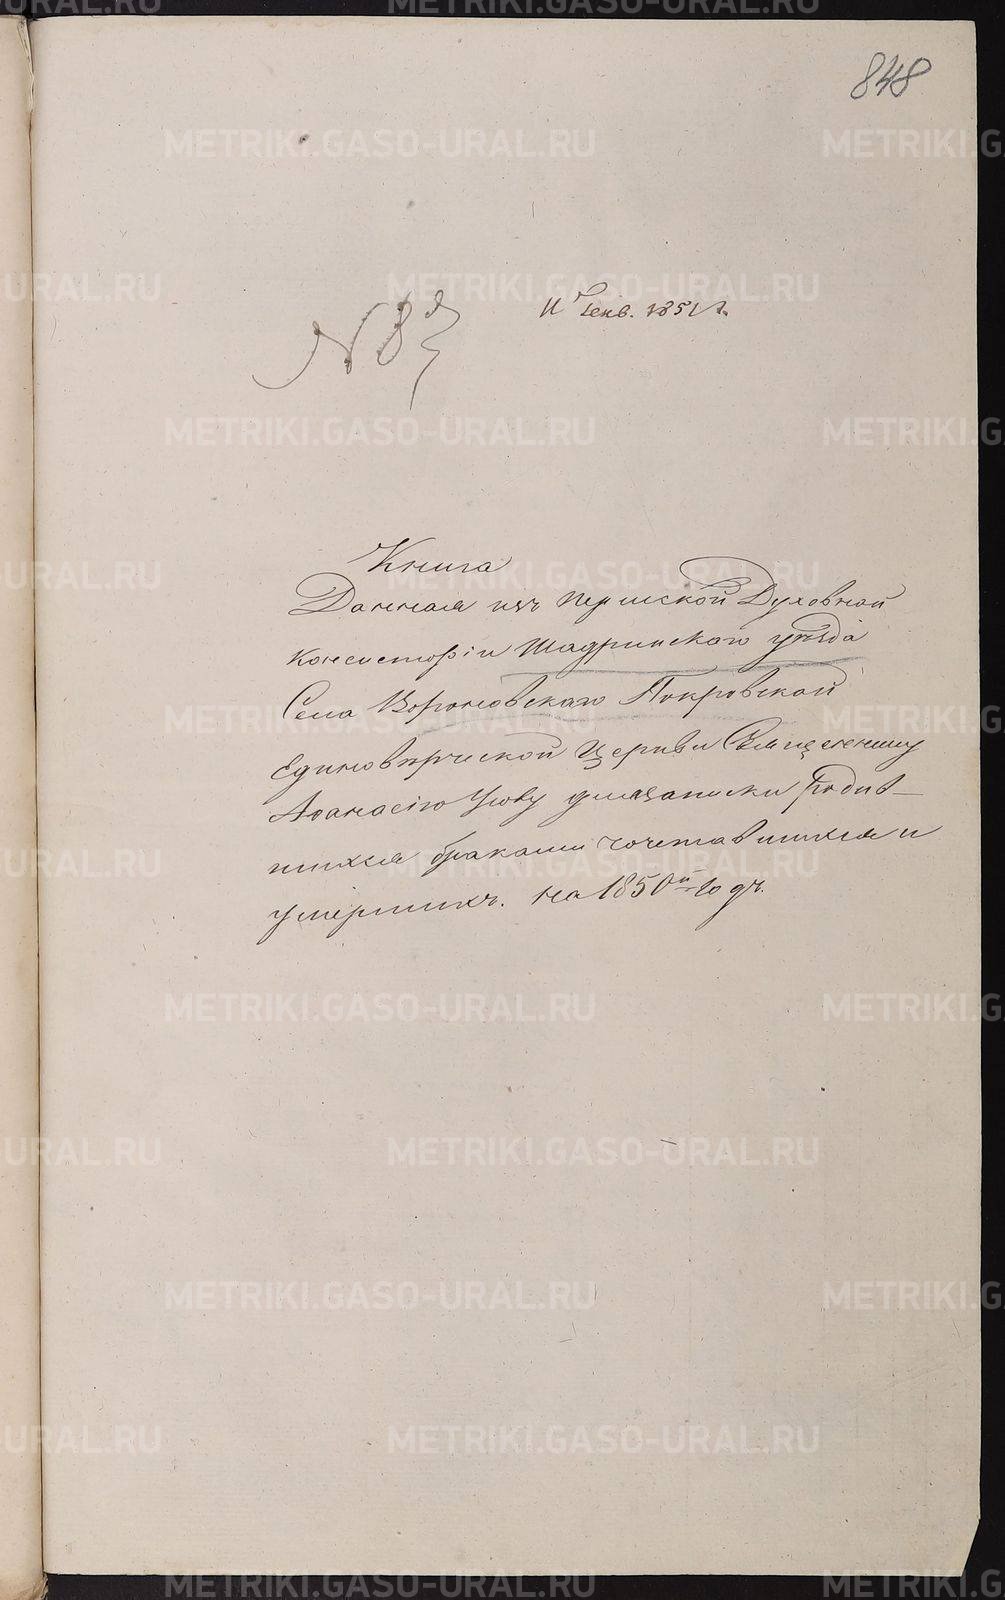 848
11 Генв. 1851 г.
№ 8й
Книга
Данная изъ Пермской Духовной
Консисторіи Шадринскаго уѣзда
Села Вороновскаго Покровской
Единовѣрческой Церкви Священнику
Аѳанасію Усову для записки Родив-
шихся браками сочетавшихся и
умершихъ. на 1850й годъ.
METRIKI.GASO-URAL.RU